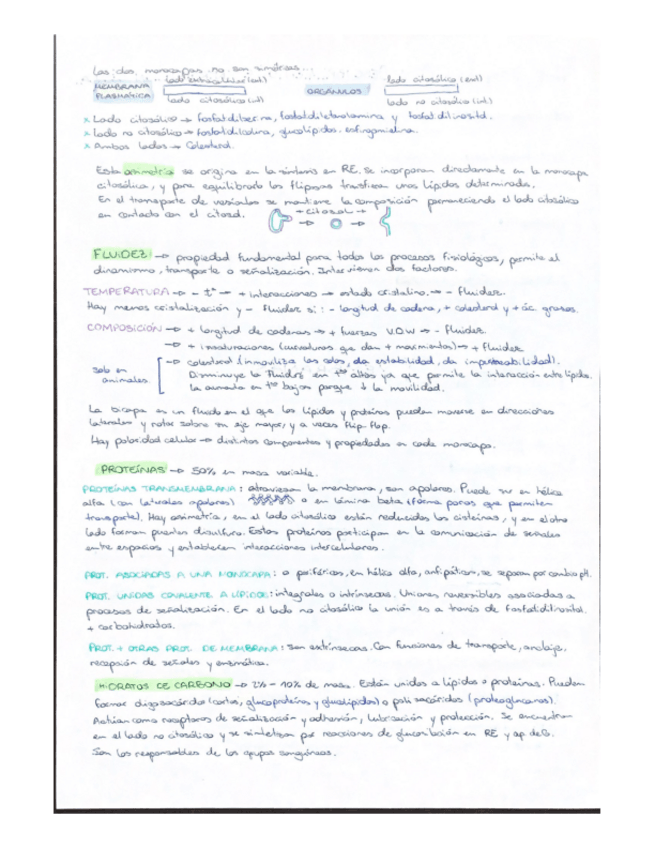 Las dos monocapas no son simétricas...
MEMBRANA PLASMÁTICA lado extracelular (ext) ORGÁNULOS lado citosólico (ext)
lado citosólico (int) lado no citosólico (int.)
* Lado citosólico → fosfatidilserina, fosfatidiletanolamina y fosfatidilinositol.
* Lado no citosólico → fosfatidilcolina, glucolípidos, esfingomielina.
* Ambos lados → Colesterol.
Esta asimetría se origina en la síntesis en RE. Se incorporan directamente en la monocapa
citosólica, y para equilibrarlo las flipasas trasfieren unos lípidos determinados.
En el transporte de vesículas se mantiene la composición permaneciendo el lado citosólico
en contacto con el citosol. ← citosol →
FLUIDEZ → propiedad fundamental para todos los procesos fisiológicos, permite el
dinamismo, transporte o señalización. Intervienen dos factores.
TEMPERATURA → - tª → + interacciones → estado cristalino → - fluidez.
Hay menos cristalización y - fluidez si: - longitud de cadena, + colesterol y + ác. grasos.
COMPOSICIÓN → + longitud de cadenas → + fuerzas V.D.W → - fluidez.
→ + insaturaciones (curvaturas que dan + movimientos) → + fluidez
solo en animales → colesterol (inmoviliza las colas, da estabilidad, da impermeabilidad).
Disminuye la fluidez en tªs altas ya que permite la interacción entre lípidos.
La aumenta en tªs bajas porque ↓ la movilidad.
La bicapa es un fluido en el que los lípidos y proteínas pueden moverse en direcciones
laterales y rotar sobre su eje mayor, y a veces flip-flop.
Hay polaridad celular → distintos componentes y propiedades en cada monocapa.
PROTEÍNAS → 50% en masa variable.
PROTEÍNAS TRANSMEMBRANA: atraviesan la membrana, son apolares. Puede ser en hélice
alfa (con laterales apolares) o en lámina beta (forma poros que permiten
transporte). Hay asimetría, en el lado citosólico están reducidas las cisteínas, y en el otro
lado forman puentes disulfuro. Estas proteínas participan en la comunicación de señales
entre espacios y establecen interacciones intercelulares.
PROT. ASOCIADAS A UNA MONOCAPA: o periféricas, en hélice alfa, anfipáticas, se separan por cambio pH.
PROT. UNIDAS COVALENTE A LÍPIDOS: integrales o intrínsecas. Uniones reversibles asociadas a
procesos de señalización. En el lado no citosólico la unión es a través de fosfatidilinositol
+ carbohidratos.
PROT. + OTRAS PROT. DE MEMBRANA: son extrínsecas. Con funciones de transporte, anclaje,
recepción de señales y enzimática.
HIDRATOS DE CARBONO → 2% - 10% de masa. Están unidos a lípidos o proteínas. Pueden
formar oligosacáridos (cortos, glucoproteínas y glucolípidos) o polisacáridos (proteoglucanos).
Actúan como receptores de señalización y adhesión, lubricación y protección. Se encuentran
en el lado no citosólico y se sintetizan por reacciones de glucosilación en RE y ap. de G.
Son los responsables de los grupos sanguíneos.